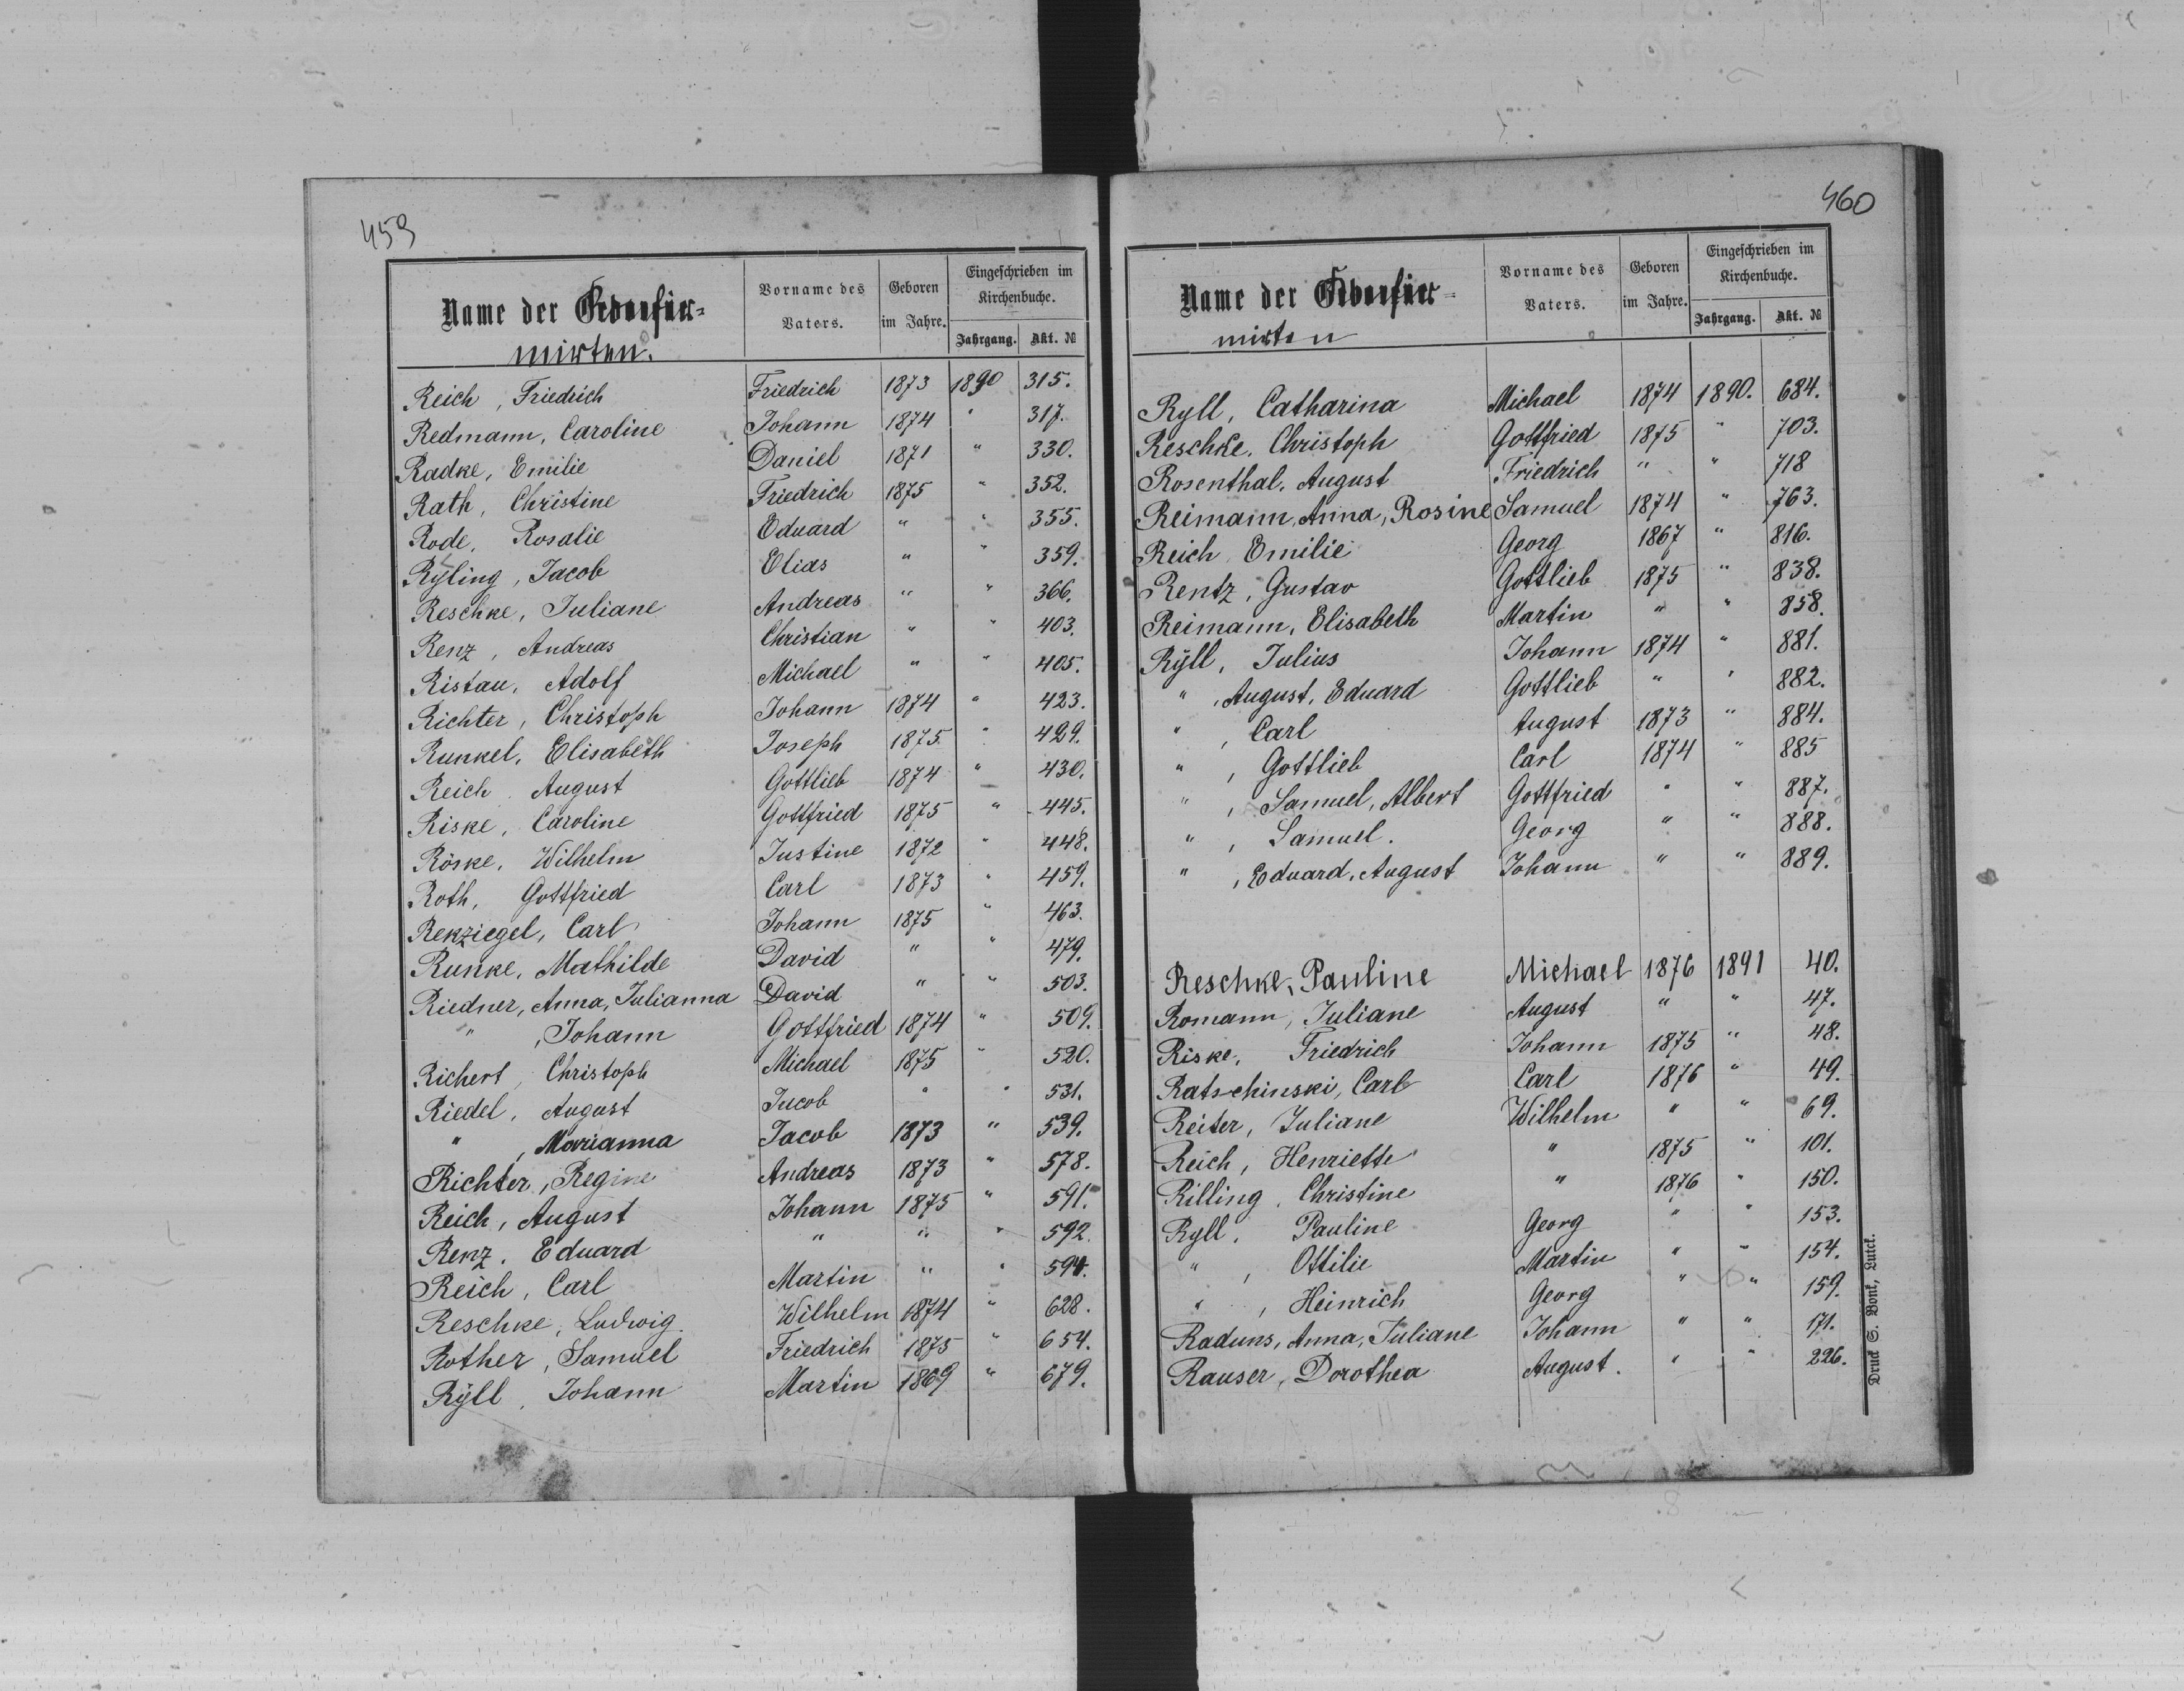 459
Name der Geborenen
Confir=
mirten.
Vorname des
Vaters.
Geboren
im Jahre.
Eingeschrieben im
Kirchenbuche.
Jahrgang. Akt. №
Reich, Friedrich Friedrich 1873 1890 315.
Redmann, Caroline Johann 1874 " 317.
Radke, Emilie Daniel 1871 " 330.
Rath, Christine Friedrich 1875 " 352.
Rode, Rosalie Eduard " " 355.
Ryling, Jacob Elias " " 359.
Reschke, Juliane Andreas " " 366.
Renz, Andreas Christian " " 403.
Ristau, Adolf Michael " " 405.
Richter, Christoph Johann 1874 " 423.
Runkel, Elisabeth Joseph 1875. " 429.
Reich August Gottlieb 1874 " 430.
Riske, Caroline Gottfried 1875 " 445.
Röske, Wilhelm Justine 1872 " 448.
Roth, Gottfried Carl 1873 " 459.
Rekziegel, Carl Johann 1875 " 463.
Runke, Mathilde David " " 479.
Riedner, Anna, Julianna David " " 503.
" , Johann Gottfried 1874 " 509.
Richert, Christoph Michael 1875 " 520.
Riedel, August Jacob " " 531.
" , Marianna Jacob 1873 " 539.
Richter, Regine Andreas 1873 " 578.
Reich, August Johann 1875 " 591.
Renz, Eduard " " " 592.
Reich, Carl Martin " " 594.
Reschke, Ludwig Wilhelm 1874 " 628.
Rother, Samuel Friedrich 1875 " 654.
Rÿll, Johann Martin 1869 " 679.
460
Name der Geborenen
Confir=
mirten
Vorname des
Vaters.
Geboren
im Jahre.
Eingeschrieben im
Kirchenbuche.
Jahrgang. Akt. №
Ryll, Catharina Michael 1874 1890. 684.
Reschke, Christoph Gottfried 1875 " 703.
Rosenthal, August Friedrich " " 718
Reimann, Anna, Rosine Samuel 1874 " 763.
Reich Emilie Georg 1867 " 816.
Rentz, Gustav Gottlieb 1875 " 838.
Reimann, Elisabeth Martin " " 858.
Rÿll, Julius Johann 1874 " 881.
" , August, Eduard Gottlieb " " 882.
" , Carl August 1873 " 884.
" , Gottlieb Carl 1874 " 885
" , Samuel, Albert Gottfried " " 887.
" , Samuel. Georg " " 888.
" , Eduard, August Johann " " 889.
Reschke, Pauline Michael 1876 1891 40.
Romann, Juliane August " " 47.
Riske, Friedrich Johann 1875 " 48.
Ratschinski, Carl Carl 1876 " 49.
Reiter, Juliane Wilhelm " " 69.
Reich, Henriette " 1875 " 101.
Rilling, Christine " 1876 " 150.
Ryll, Pauline Georg " " 153.
" , Ottilie Martin " " 154.
" , Heinrich Georg " " 159.
Raduns, Anna, Juliane Johann " " 171.
Rauser, Dorothea August. " " 226.
Druck S. Bonk, Lutck.